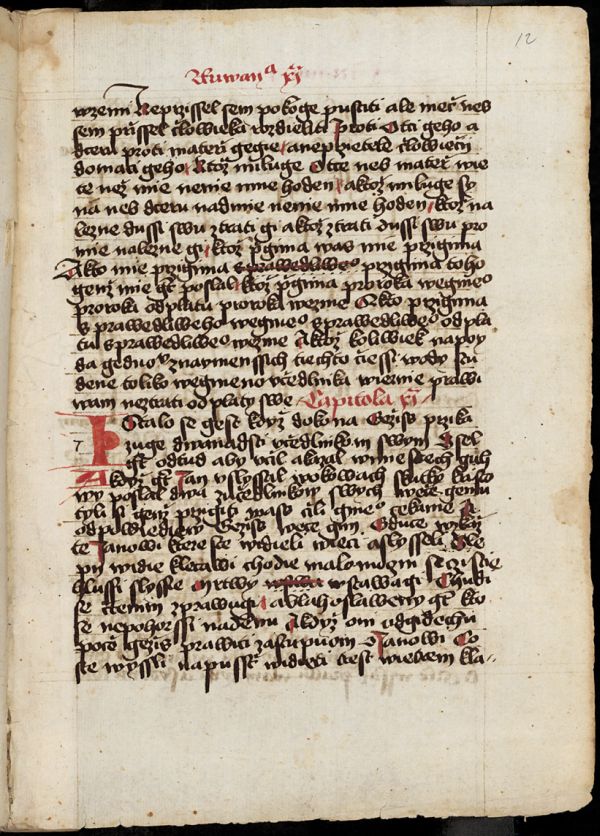 12
wzemi Neprzissel sem pokoge pustiti ale mecz neb
sem przissel czlowieka rozdieliti proti otci geho a
dceru proti materzi gegie a neprzietele czlowieczij
domaci geho Ktoz miluge Otce neb materz wie
ce nez mie nenie mne hoden a ktoz miluge sy
na neb dceru nad mie nenie mne hoden ktoz na
lezne dussi swu ztrati gi a ktoz ztrati dussi swu pro
mie nalezne gi ktoz prigima was mie przigima
A kto mie przigima sprawedliweo przigima toho
genz mie gt poslal ktoz prigima proroka wegmeo
proroka odplatu proroka wezme A kto przigima
sprawedliweho wegmeo sprawedliweo odpla
tu sprawedliweo wezme A ktoz koliwiek napoy
da geduo z naymenssich tiechto ciessi wody stu
dene toliko wegmeno uczedlnika wierne prawi
wam neztrati odplaty swe Capitola xi
Stalo se gest kdyz dokona Gezis przika
zuge dwanadsti uczedlnikom swym Ssel
gt odtud aby ucil a kazal w miestech gich
A kdyz gt Jan uslyssal w okowach skutky kristo
wy poslal dwa z uczedlnikow swych wece gemu
ty li si genz przigiti mass cili gineo czekame A
odpowiediew Gezis wece gim Gduce wzkaz
te Janowi ktere ste widieli wieci a slysseli Sle
pij widie klecawi chodie malomocni se czistie
hlussi slyssie Mrtwy wstawagi Chudi
se cztenim zprawugi a blahoslaweny gt kto
se nepohorssi nademnu A kdyz oni odgidechu
pocze Gezis prawiti zastupuom o Janowi Co
ste wyssli na pusst widieti trest wietrem kla-